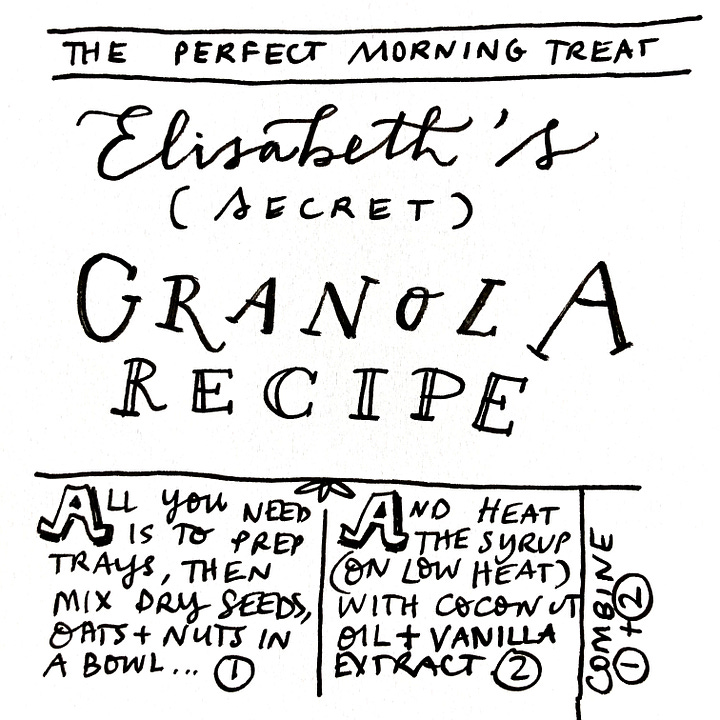 THE PERFECT MORNING TREAT
Elisabeth's
(SECRET)
GRANOLA
RECIPE
ALL YOU NEED
IS TO PREP
TRAYS, THEN
MIX DRY SEEDS,
OATS + NUTS IN
A BOWL... ①
AND HEAT
THE SYRUP
(ON LOW HEAT)
WITH COCONUT
OIL + VANILLA
EXTRACT ②
COMBINE
① + ②